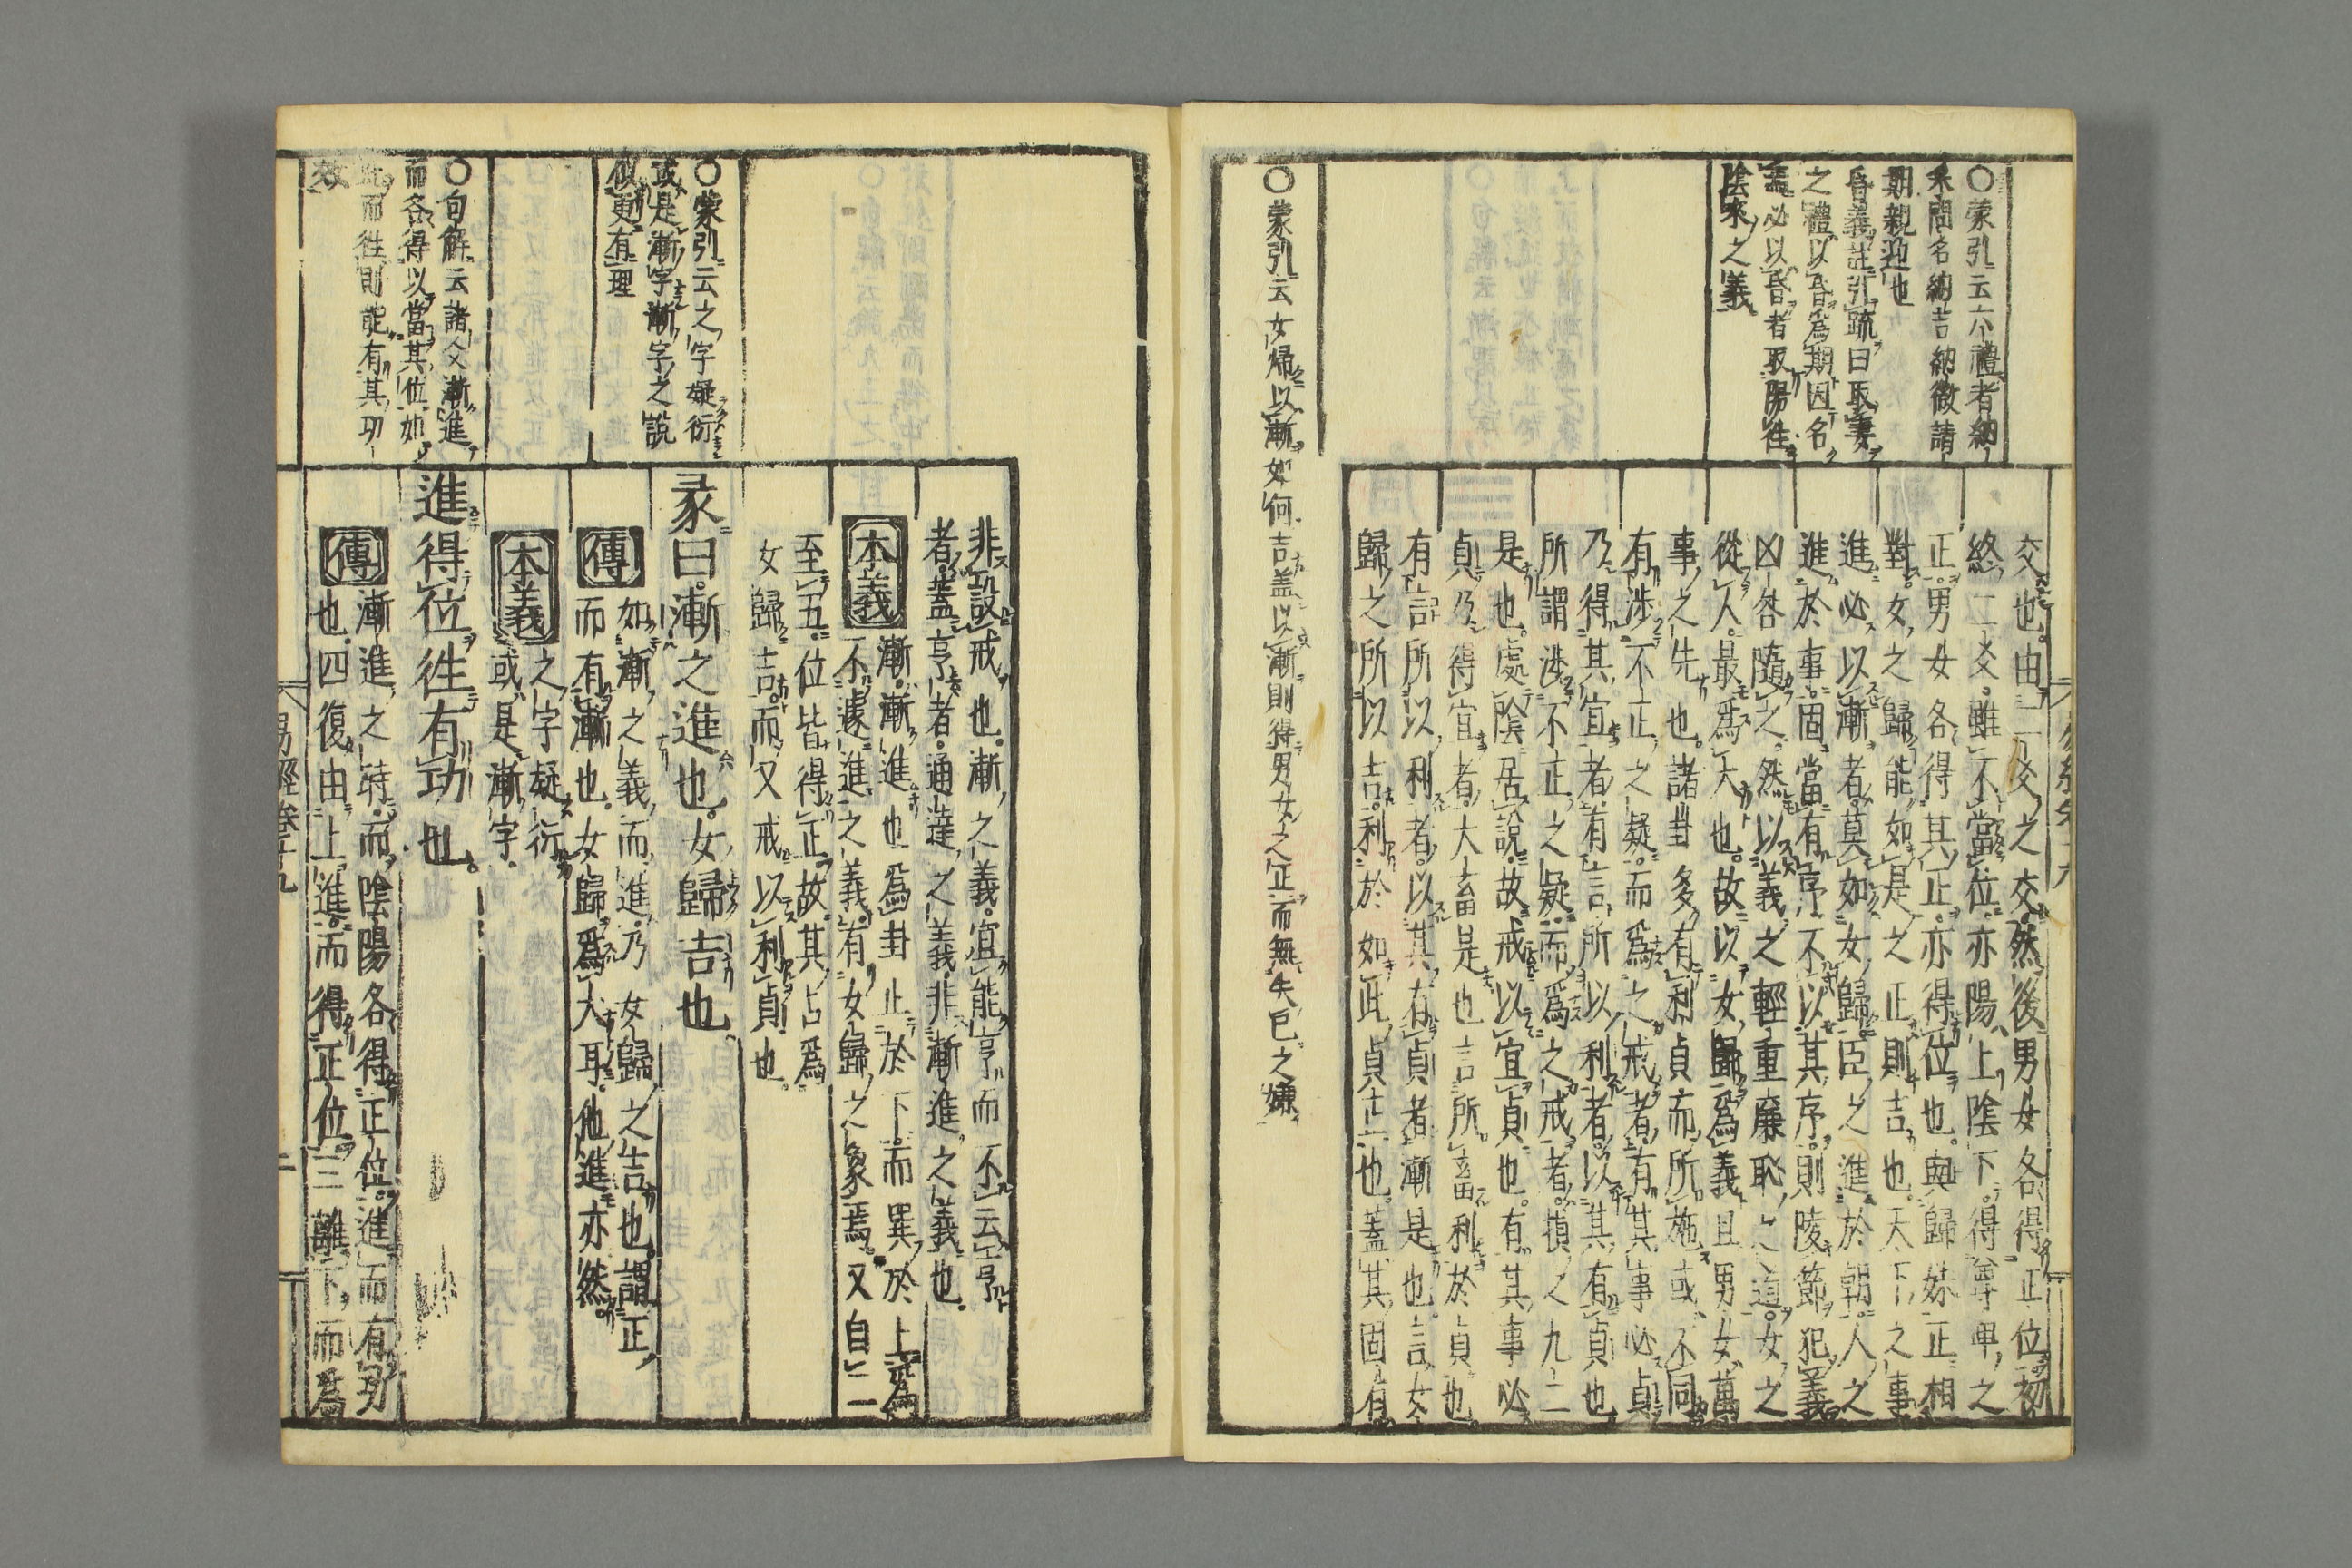 ○蒙引云六禮者納
采問名納吉納徴請
期親迎也
昏義註引疏曰取妻
之禮以昏爲期因名
焉必以昏者取陽往
陰來之義
交也。由二爻之交。然後男女各得正位。初
終二爻。雖不當位。亦陽上陰下。得尊卑之
正。男女各得其正。亦得位也。與歸妹正相
對。女之歸能如是之正則吉也。天下之事
進必以漸者。莫如女歸。臣之進於朝。人之
進於事。固當有序。不以其序則陵節犯義
凶咎隨之。然以義之輕重廉恥之道。女之
從人。最爲大也。故以女歸爲義且男女萬
事之先也。諸卦多有利貞而所施或不同
有涉不正之疑。而爲之戒者。有其事必貞
乃得其宜者。有言所以利者。以其有貞也
所謂涉不正之疑。而爲之戒者。損之九二
是也。處陰居説。故戒以宜貞也。有其事必
貞乃得宜者。大畜是也言所畜利於貞也。
有言所以利者。以其有貞者漸是也言女
歸之所以吉。利於如此貞正也。蓋其固有
○蒙引云女帰以漸如何吉盖以漸則得男女之正而無失己之嫌
○蒙引云之字疑衍
或是漸字漸字之説
似更有理
○句解云諸爻漸進
而各得以當其位如
此而往則能有其功
效
非設戒也。漸之義。宜能亨而不云亨
者。蓋亨者。通達之義。非漸進之義也。
本義 漸漸進也爲卦止於下。而巽於上。爲
不遽進之義。有女歸之象焉。又自二
至五。位皆得正故。其占爲
女歸吉。而又戒以利貞也。
彖曰。漸之進也。女歸吉也。
傳 如漸之義而進。乃女歸之吉也。謂正
而有漸也。女歸爲大耳。他進亦然。
本義 之字疑衍
或是漸字。
進得位往有功也。
傳 漸進之時。而陰陽各得正位。進而有功
也。四復由上進。而得正位。三離下。而爲
易經卷十九
二